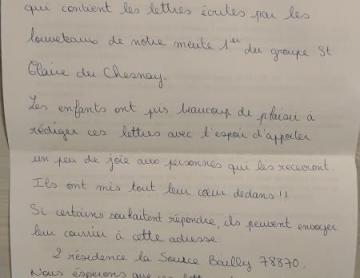 qui contient les lettres écrites par les
louveteaux de notre meute 1ère du groupe St
Claire du Chesnay.
Les enfants ont pris beaucoup de plaisir à
rédiger ces lettres avec l'espoir d'apporter
un peu de joie aux personnes qui les recevront.
Ils ont mis tout leur cœur dedans !!
Si certains souhaitent répondre, ils peuvent envoyer
leur courrier à cette adresse
2 résidence la Source Bailly 78870.
Nous espérons que ces lettres